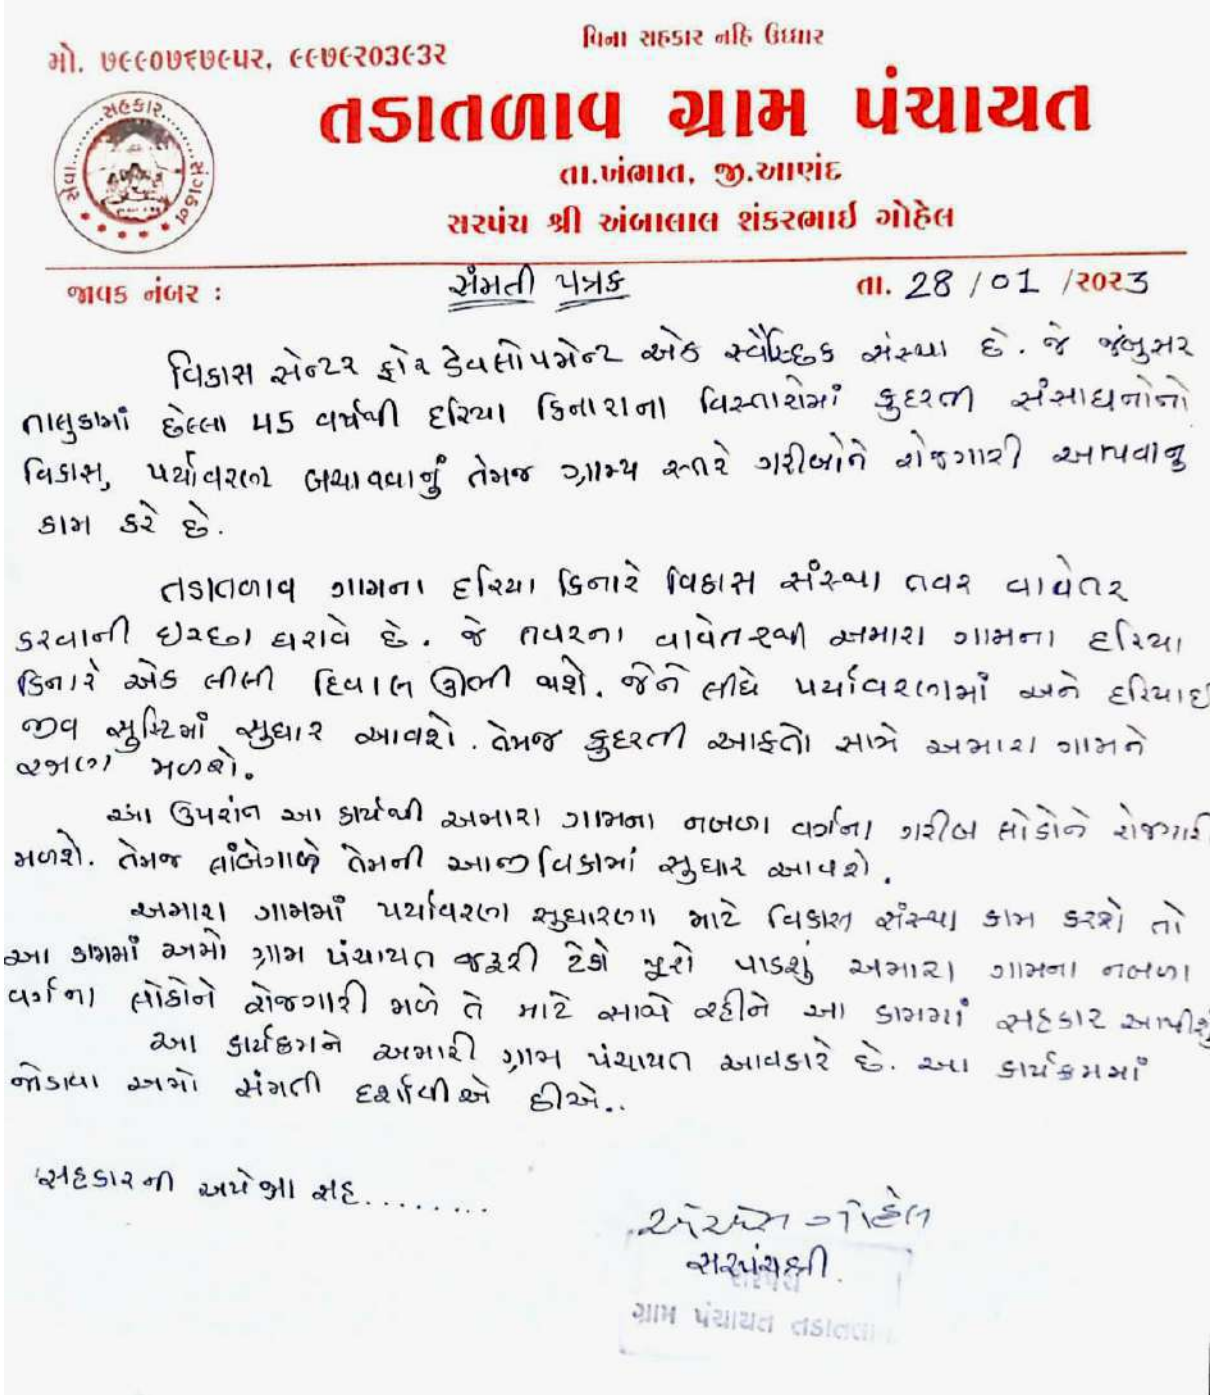 વિના સહકાર નહિ ઉધ્ધાર
મો. ૭૯૯૦૭૬૭૯૫૨, ૯૯૭૯૨૦૩૯૩૨
સહકાર
સેવા
સંગઠન
તડાતળાવ ગ્રામ પંચાયત
તા.ખંભાત, જી.આણંદ
સરપંચ શ્રી અંબાલાલ શંકરભાઇ ગોહેલ
જાવક નંબર : સંમતી પત્રક તા. 28 / 01 /૨૦૨3
વિકાસ સેન્ટર ફોર ડેવલોપમેન્ટ એક સ્વૈચ્છિક સંસ્થા છે. જે જંબુસર
તાલુકામાં છેલ્લા ૫ વર્ષથી દરિયા કિનારાના વિસ્તારોમાં કુદરતી સંસાધનોનો
વિકાસ, પર્યાવરણ બચાવવાનું તેમજ ગ્રામ્ય સ્તરે ગરીબોને રોજગારી આપવાનું
કામ કરે છે.
તડાતળાવ ગામના દરિયા કિનારે વિકાસ સંસ્થા તવર વાવેતર
કરવાની ઇચ્છા ધરાવે છે. જે તવરના વાવેતરથી અમારા ગામના દરિયા
કિનારે એક લીલી દિવાલ ઊભી થશે. જેને લીધે પર્યાવરણમાં અને દરિયાઇ
જીવ સુષ્ટિમાં સુધાર આવશે. તેમજ કુદરતી આફતો સામે અમારા ગામને
રક્ષણ મળશે.
આ ઉપરાંત આ કાર્યથી અમારા ગામના નબળા વર્ગના ગરીબ લોકોને રોજગારી
મળશે. તેમજ લાંબેગાળે તેમની આજીવિકામાં સુધાર આવશે.
અમારા ગામમાં પર્યાવરણ સુધારણા માટે વિકાસ સંસ્થા કામ કરશે તો
આ કામમાં અમો ગ્રામ પંચાયત જરૂરી ટેકો પુરો પાડશું અમારા ગામના નબળા
વર્ગના લોકોને રોજગારી મળે તે માટે સાથે રહીને આ કામમાં સહકાર આપીશું
આ કાર્યક્રમને અમારી ગ્રામ પંચાયત આવકારે છે. આ કાર્યક્રમમાં
જોડાવા અમો સંમતી દર્શાવીએ છીએ..
સહકારની અપેક્ષા સહ........
ગોહેલ
સરપંચશ્રી.
સરપંચ
ગ્રામ પંચાયત તડાતળાવ